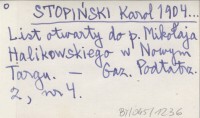 STOPIŃSKI Karol 1904...
List otwarty do p. Mikołaja
Halikowskiego w Nowym
Targu. — Gaz. Podtatrz.
2, nr 4.
BI/065/1236